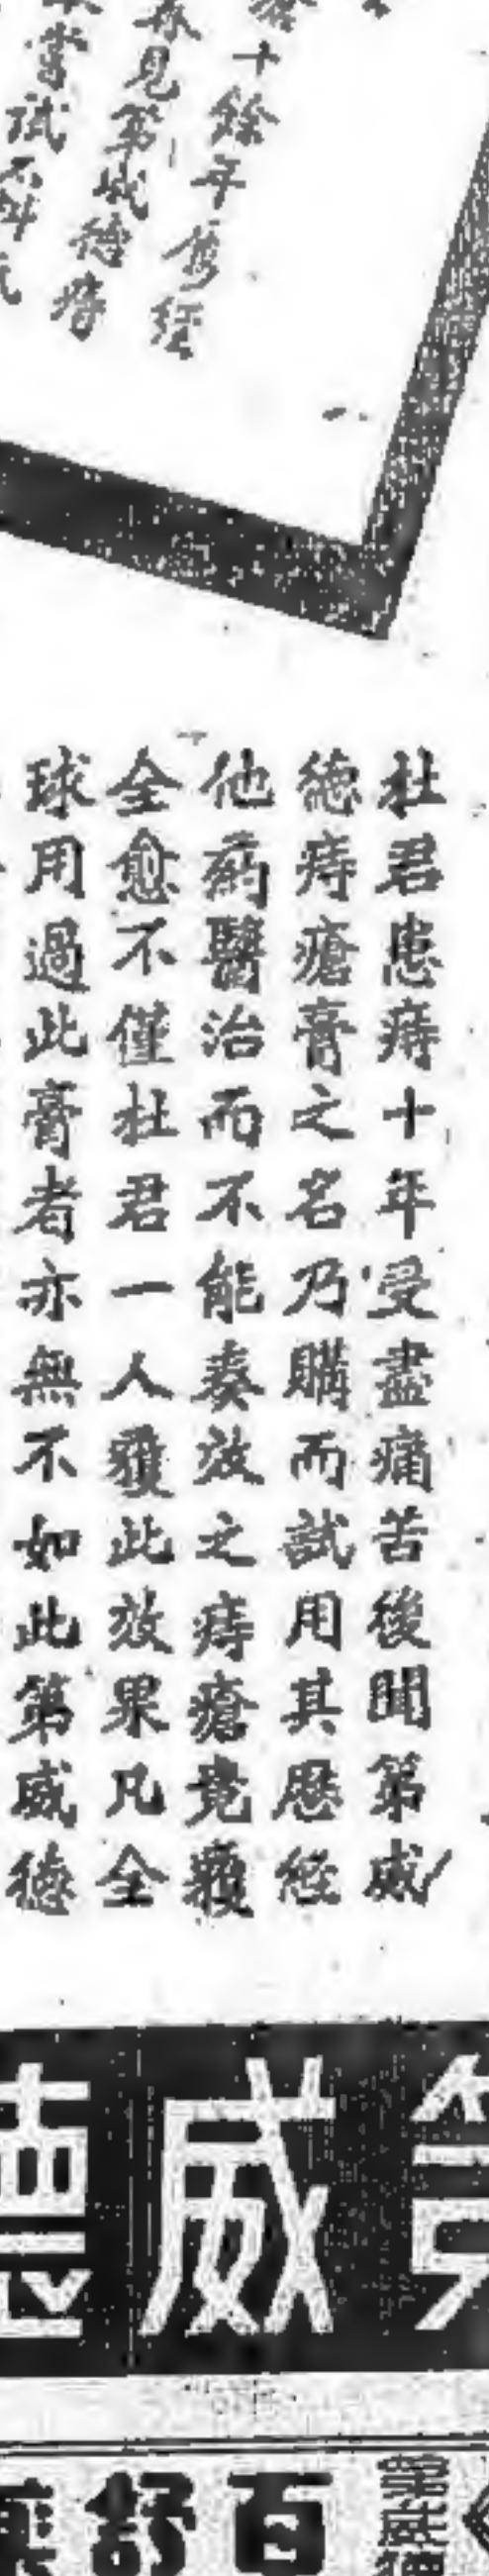 十餘年屢經
見第威德痔
嘗試
杜君患痔十年受盡痛苦後聞第威
德痔瘡膏之名乃購而試用其歷經
他葯醫治而不能奏效之痔瘡竟獲
全愈不僅杜君一人獲此效果凡全
球用過此膏者亦無不如此第威德
第威德
第威德
百舒